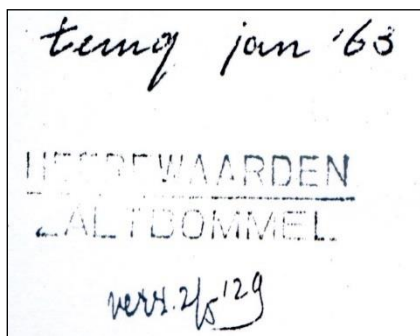 terug jan '63
HEEREWAARDEN
ZALTBOMMEL
verz. 2/5 '29